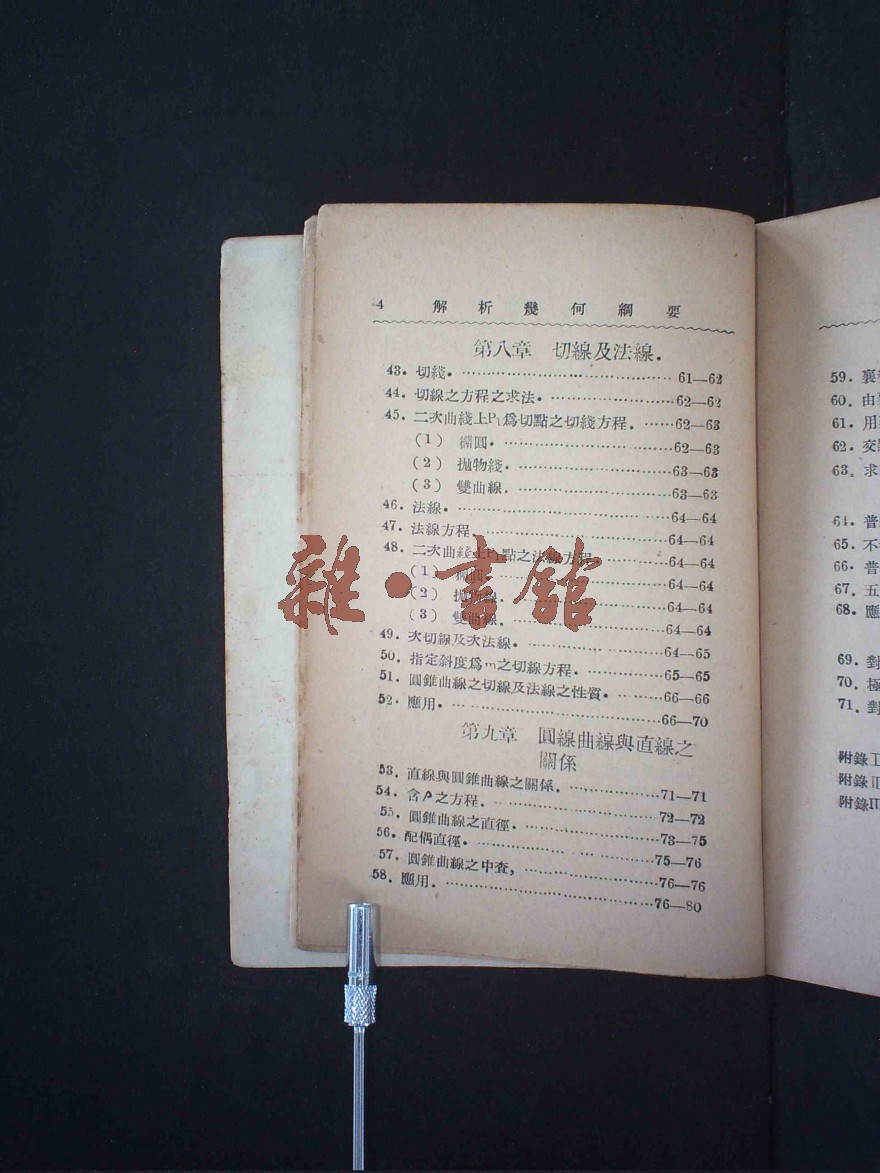 4 解析幾何綱要
第八章 切線及法線.
43. 切綫. 61—62
44. 切線之方程之求法. 62—62
45. 二次曲綫上P₁爲切點之切綫方程. 62—63
(1) 橢圓. 62—63
(2) 拋物綫. 63—63
(3) 雙曲線. 63—63
46. 法線. 64—64
47. 法線方程. 64—64
48. 二次曲綫上P₁點之法線方程 64—64
(1) 橢圓. 64—64
(2) 拋物線. 64—64
(3) 雙曲線. 64—64
49. 次切線及次法線. 64—65
50. 指定斜度爲m之切線方程. 65—65
51. 圓錐曲線之切線及法線之性質. 66—66
52. 應用. 66—70
第九章 圓線曲線與直線之
關係
53. 直線與圓錐曲線之關係. 71—71
54. 含ρ之方程. 72—72
55. 圓錐曲線之直徑. 73—75
56. 配偶直徑. 75—76
57. 圓錐曲線之中查, 76—76
58. 應用. 76—80
雜·書館
59. 襄
60. 由
61. 用
62. 交
63. 求
64. 普
65. 不
66. 普
67. 五
68. 應
69. 對
70. 極
71. 對
附錄I
附錄II
附錄II